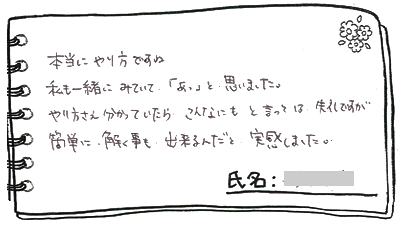 本当に やり方ですね
私も一緒に みていて、「あっ」と 思いました。
やり方さん 分かっていたら こんなにも と言っては 失礼ですが
簡単に 解く事も 出来るんだと 実感しました。
氏名: